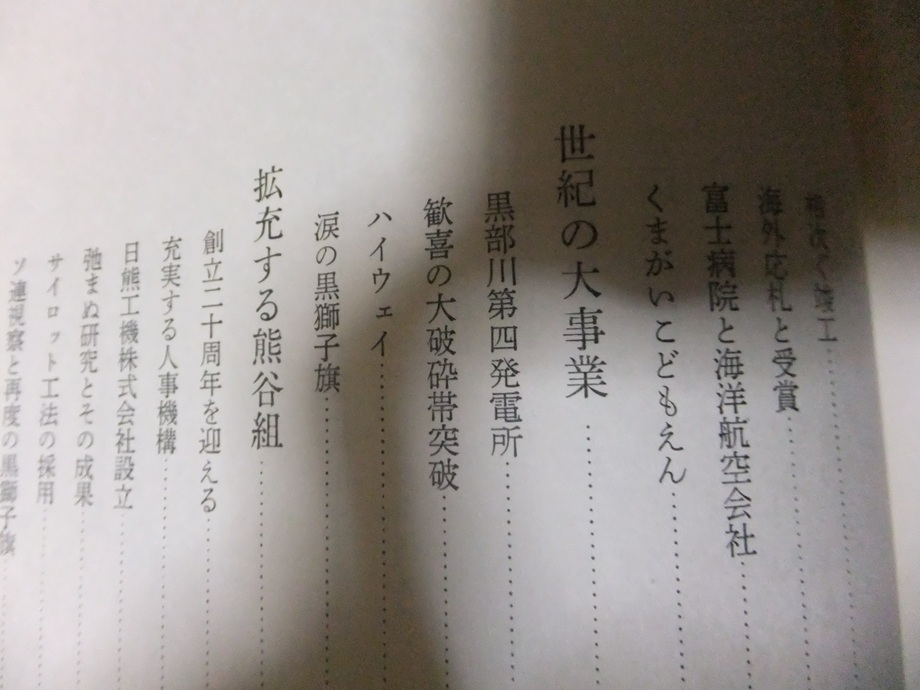 相次ぐ竣工
海外応札と受賞
富士病院と海洋航空会社
くまがいこどもえん
世紀の大事業
黒部川第四発電所
歓喜の大破砕帯突破
ハイウェイ
涙の黒獅子旗
拡充する熊谷組
創立二十周年を迎える
充実する人事機構
日熊工機株式会社設立
弛まぬ研究とその成果
サイロット工法の採用
ソ連視察と再度の黒獅子旗